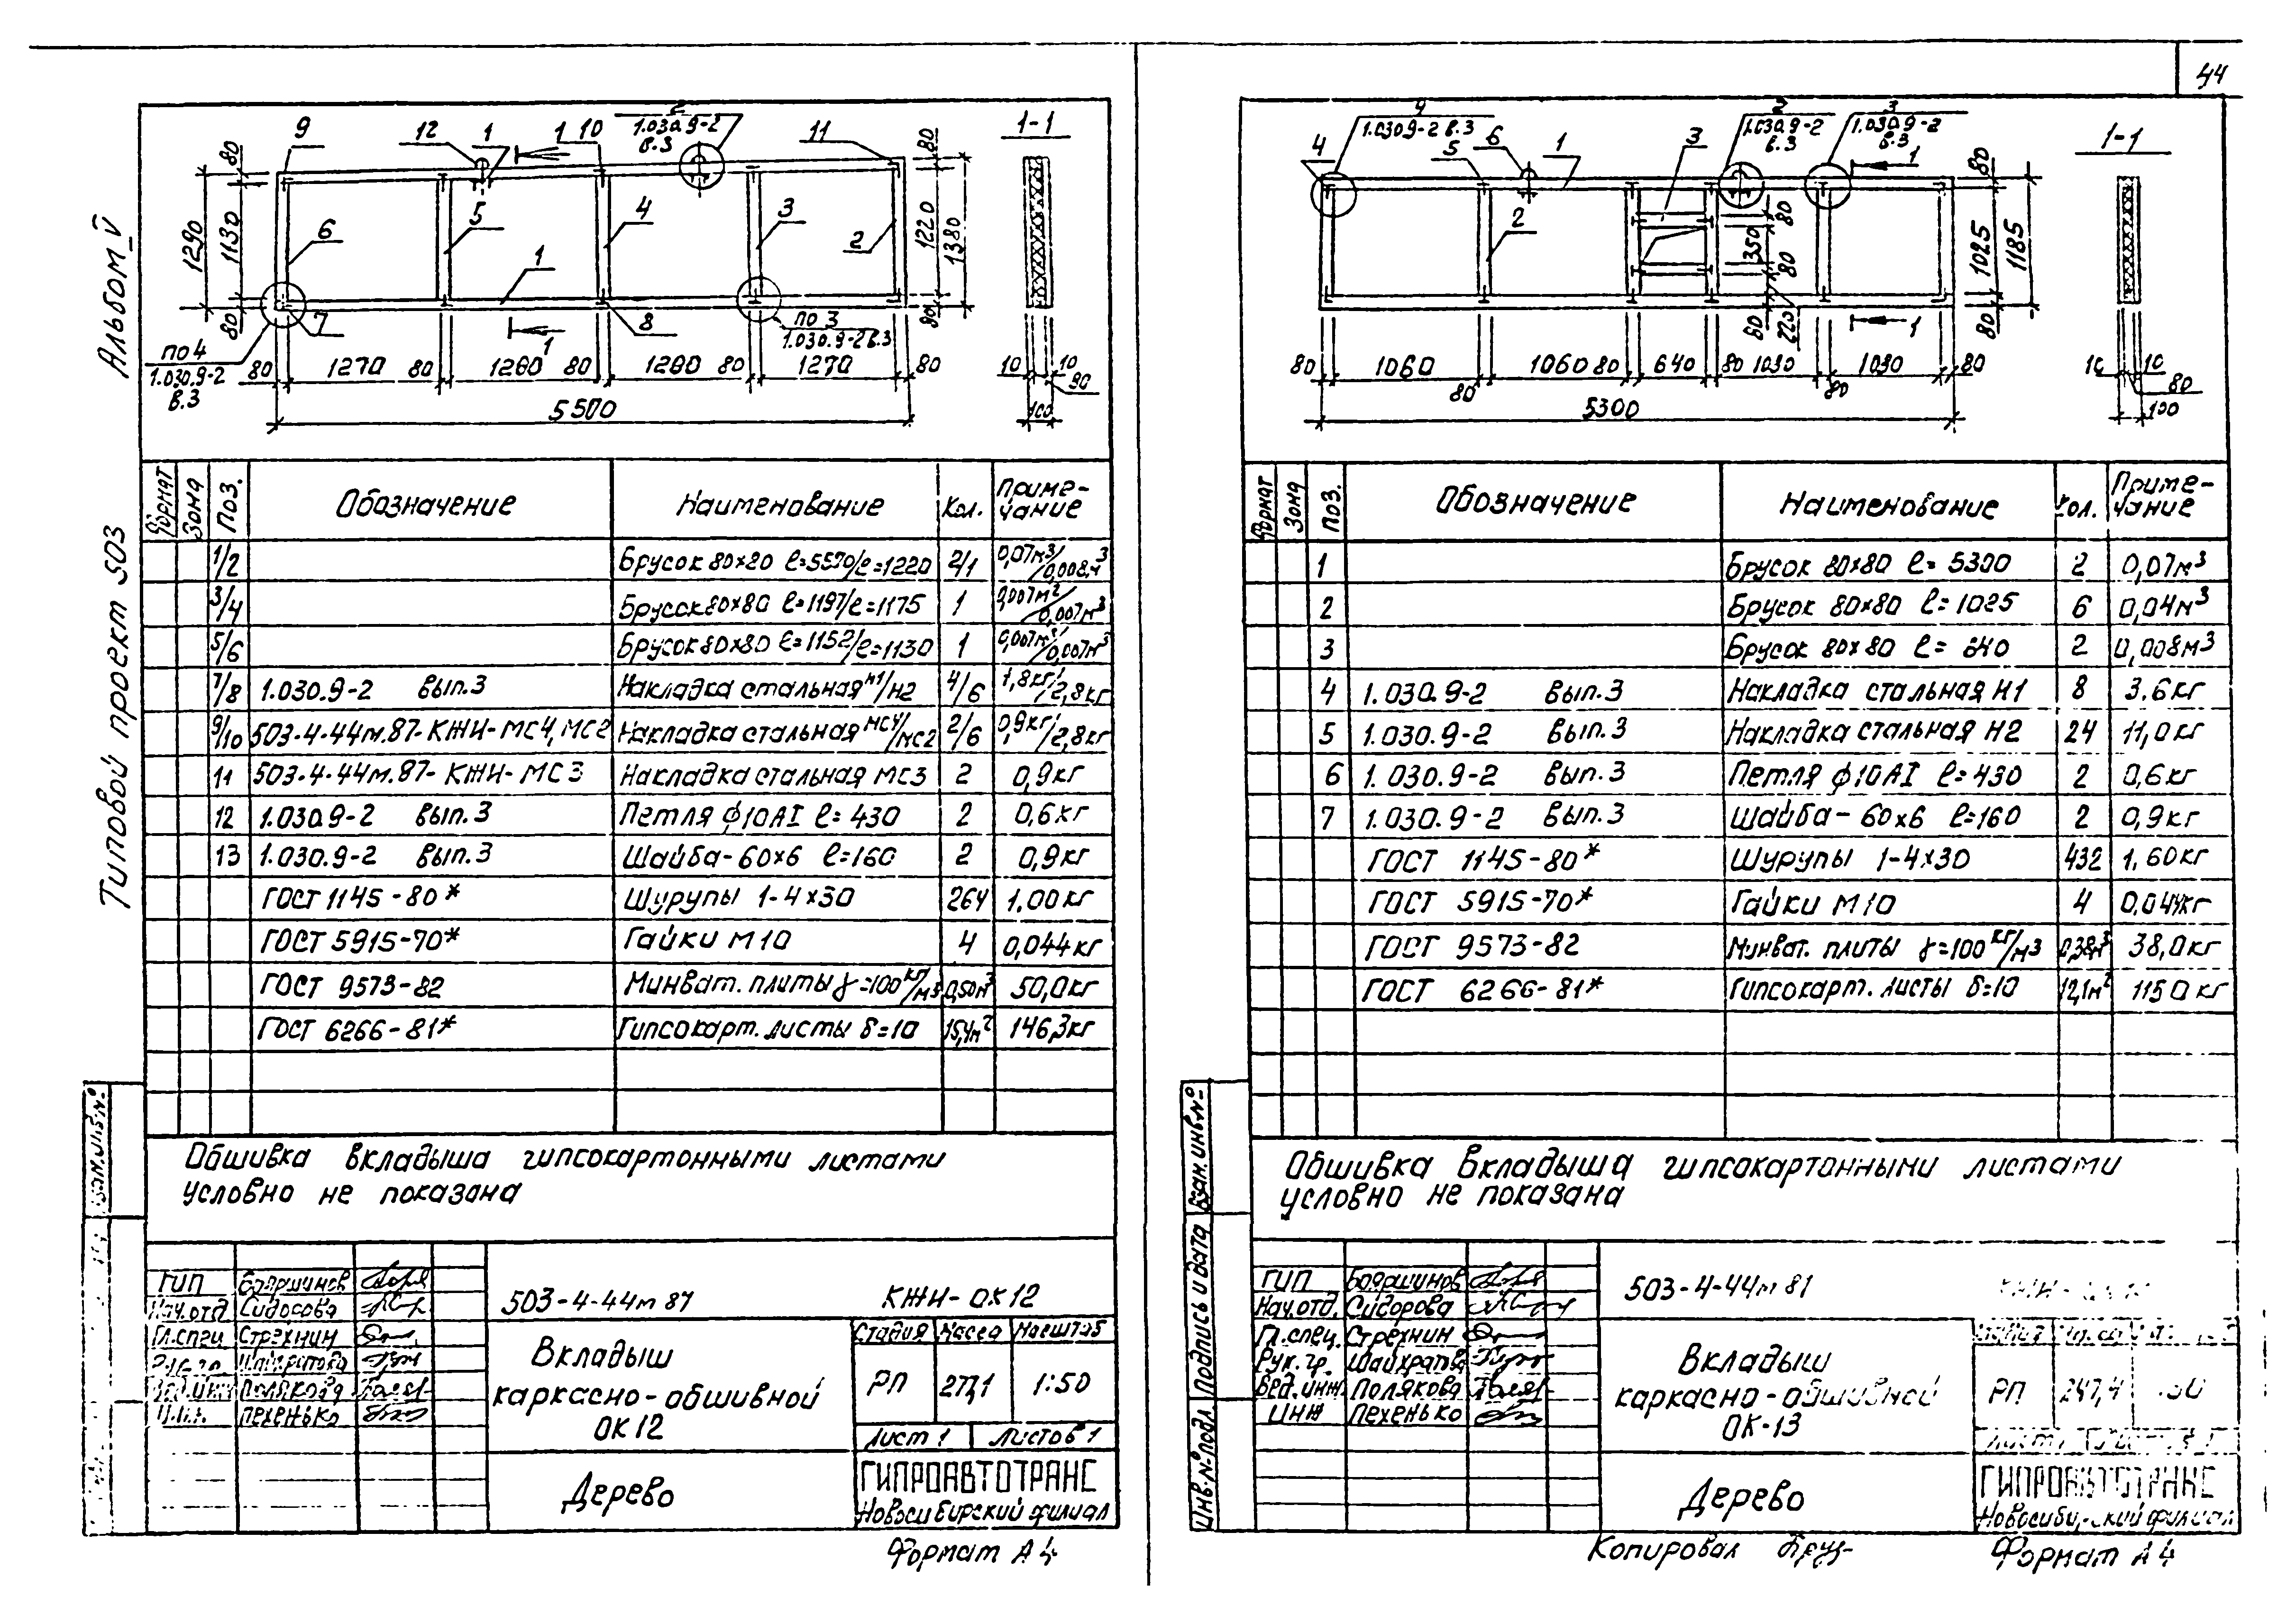 44
Альбом V
Типовой проект 503
9
12
1
1
10
2
1.030.9-2
в.3
11
1-1
80
1290
1130
80
6
5
4
3
2
1
80
1220
1380
80
7
8
по 4
1.030.9-2
в.3
по 3
1.030.9-2 в.3
1
80 1270 80 1280 80 1280 80 1270 80
5500
10 10
80
100
Формат Зона Поз. Обозначение Наименование Кол. Приме-
чание
1/2 Брусок 80х80 ℓ=5570/ℓ=1220 2/1 0,07м³/0,008м³
3/4 Брусок 80х80 ℓ=1197/ℓ=1175 1 0,007м²/0,007м³
5/6 Брусок 80х80 ℓ=1152/ℓ=1130 1 0,007м³/0,007м³
7/8 1.030.9-2 вып.3 Накладка стальная Н1/Н2 4/6 1,8кг/2,8кг
9/10 503-4-44м.87-КЖИ-МС4, МС2 Накладка стальная МС4/МС2 2/6 0,9кг/2,8кг
11 503-4-44м.87-КЖИ-МС3 Накладка стальная МС3 2 0,9кг
12 1.030.9-2 вып.3 Петля ф10АI ℓ=430 2 0,6кг
13 1.030.9-2 вып.3 Шайба-60х6 ℓ=160 2 0,9кг
ГОСТ 1145-80* Шурупы 1-4х30 264 1,00кг
ГОСТ 5915-70* Гайки М10 4 0,044кг
ГОСТ 9573-82 Минват. плиты γ=100 кг/м3 0,50м³ 50,0кг
ГОСТ 6266-81* Гипсокарт. листы δ=10 15,4м² 146,3кг
Обшивка вкладыша гипсокартонными листами
условно не показана
Взам.инв.№
ГИП Бояршинов
Нач.отд Сидорова
Гл.спец Стрехнин
Рук.гр. Шайхратова
Вед.инж Полякова
Инж. Пехенько
503-4-44м 87 КЖИ-ОК12
Вкладыш
каркасно-обшивной
ОК12
Стадия Масса Масштаб
РП 277,1 1:50
Лист 1 Листов 1
Дерево
ГИПРОАВТОТРАНС
Новосибирский филиал
Формат А4
4
1.030.9-2 в.3
4
5
6
1
3
2
1.030.9-2
в.3
3
1.030.9-2
в.3
1
1-1
2
80
350
80
60
220
80
1025
1185
80
1
80 1060 80 1060 80 640 80 1030 80 1030 80
5300
10 10
80
100
Формат Зона Поз. Обозначение Наименование Кол. Приме-
чание
1 Брусок 80х80 ℓ=5300 2 0,07м³
2 Брусок 80х80 ℓ=1025 6 0,04м³
3 Брусок 80х80 ℓ=640 2 0,008м³
4 1.030.9-2 вып.3 Накладка стальная Н1 8 3.6кг
5 1.030.9-2 вып.3 Накладка стальная Н2 24 11,0кг
6 1.030.9-2 вып.3 Петля ф10АI ℓ=430 2 0,6кг
7 1.030.9-2 вып.3 Шайба-60х6 ℓ=160 2 0,9кг
ГОСТ 1145-80* Шурупы 1-4х30 432 1,60кг
ГОСТ 5915-70* Гайки М10 4 0,044кг
ГОСТ 9573-82 Минват. плиты γ=100 кг/м3 0,38м³ 38,0кг
ГОСТ 6266-81* Гипсокарт. листы δ=10 12,1м² 115,0кг
Обшивка вкладыша гипсокартонными листами
условно не показана
Взам.инв.№
Подпись и дата
Инв.№подл
ГИП Бояршинов
Нач.отд. Сидорова
Гл.спец. Стрехнин
Рук.гр. Шайхратова
Вед.инж. Полякова
Инж Пехенько
503-4-44м 81
Вкладыш
каркасно-обшивной
ОК-13
РП 247,4
Дерево
ГИПРОАВТОТРАНС
Новосибирский филиал
Копировал
Формат А4